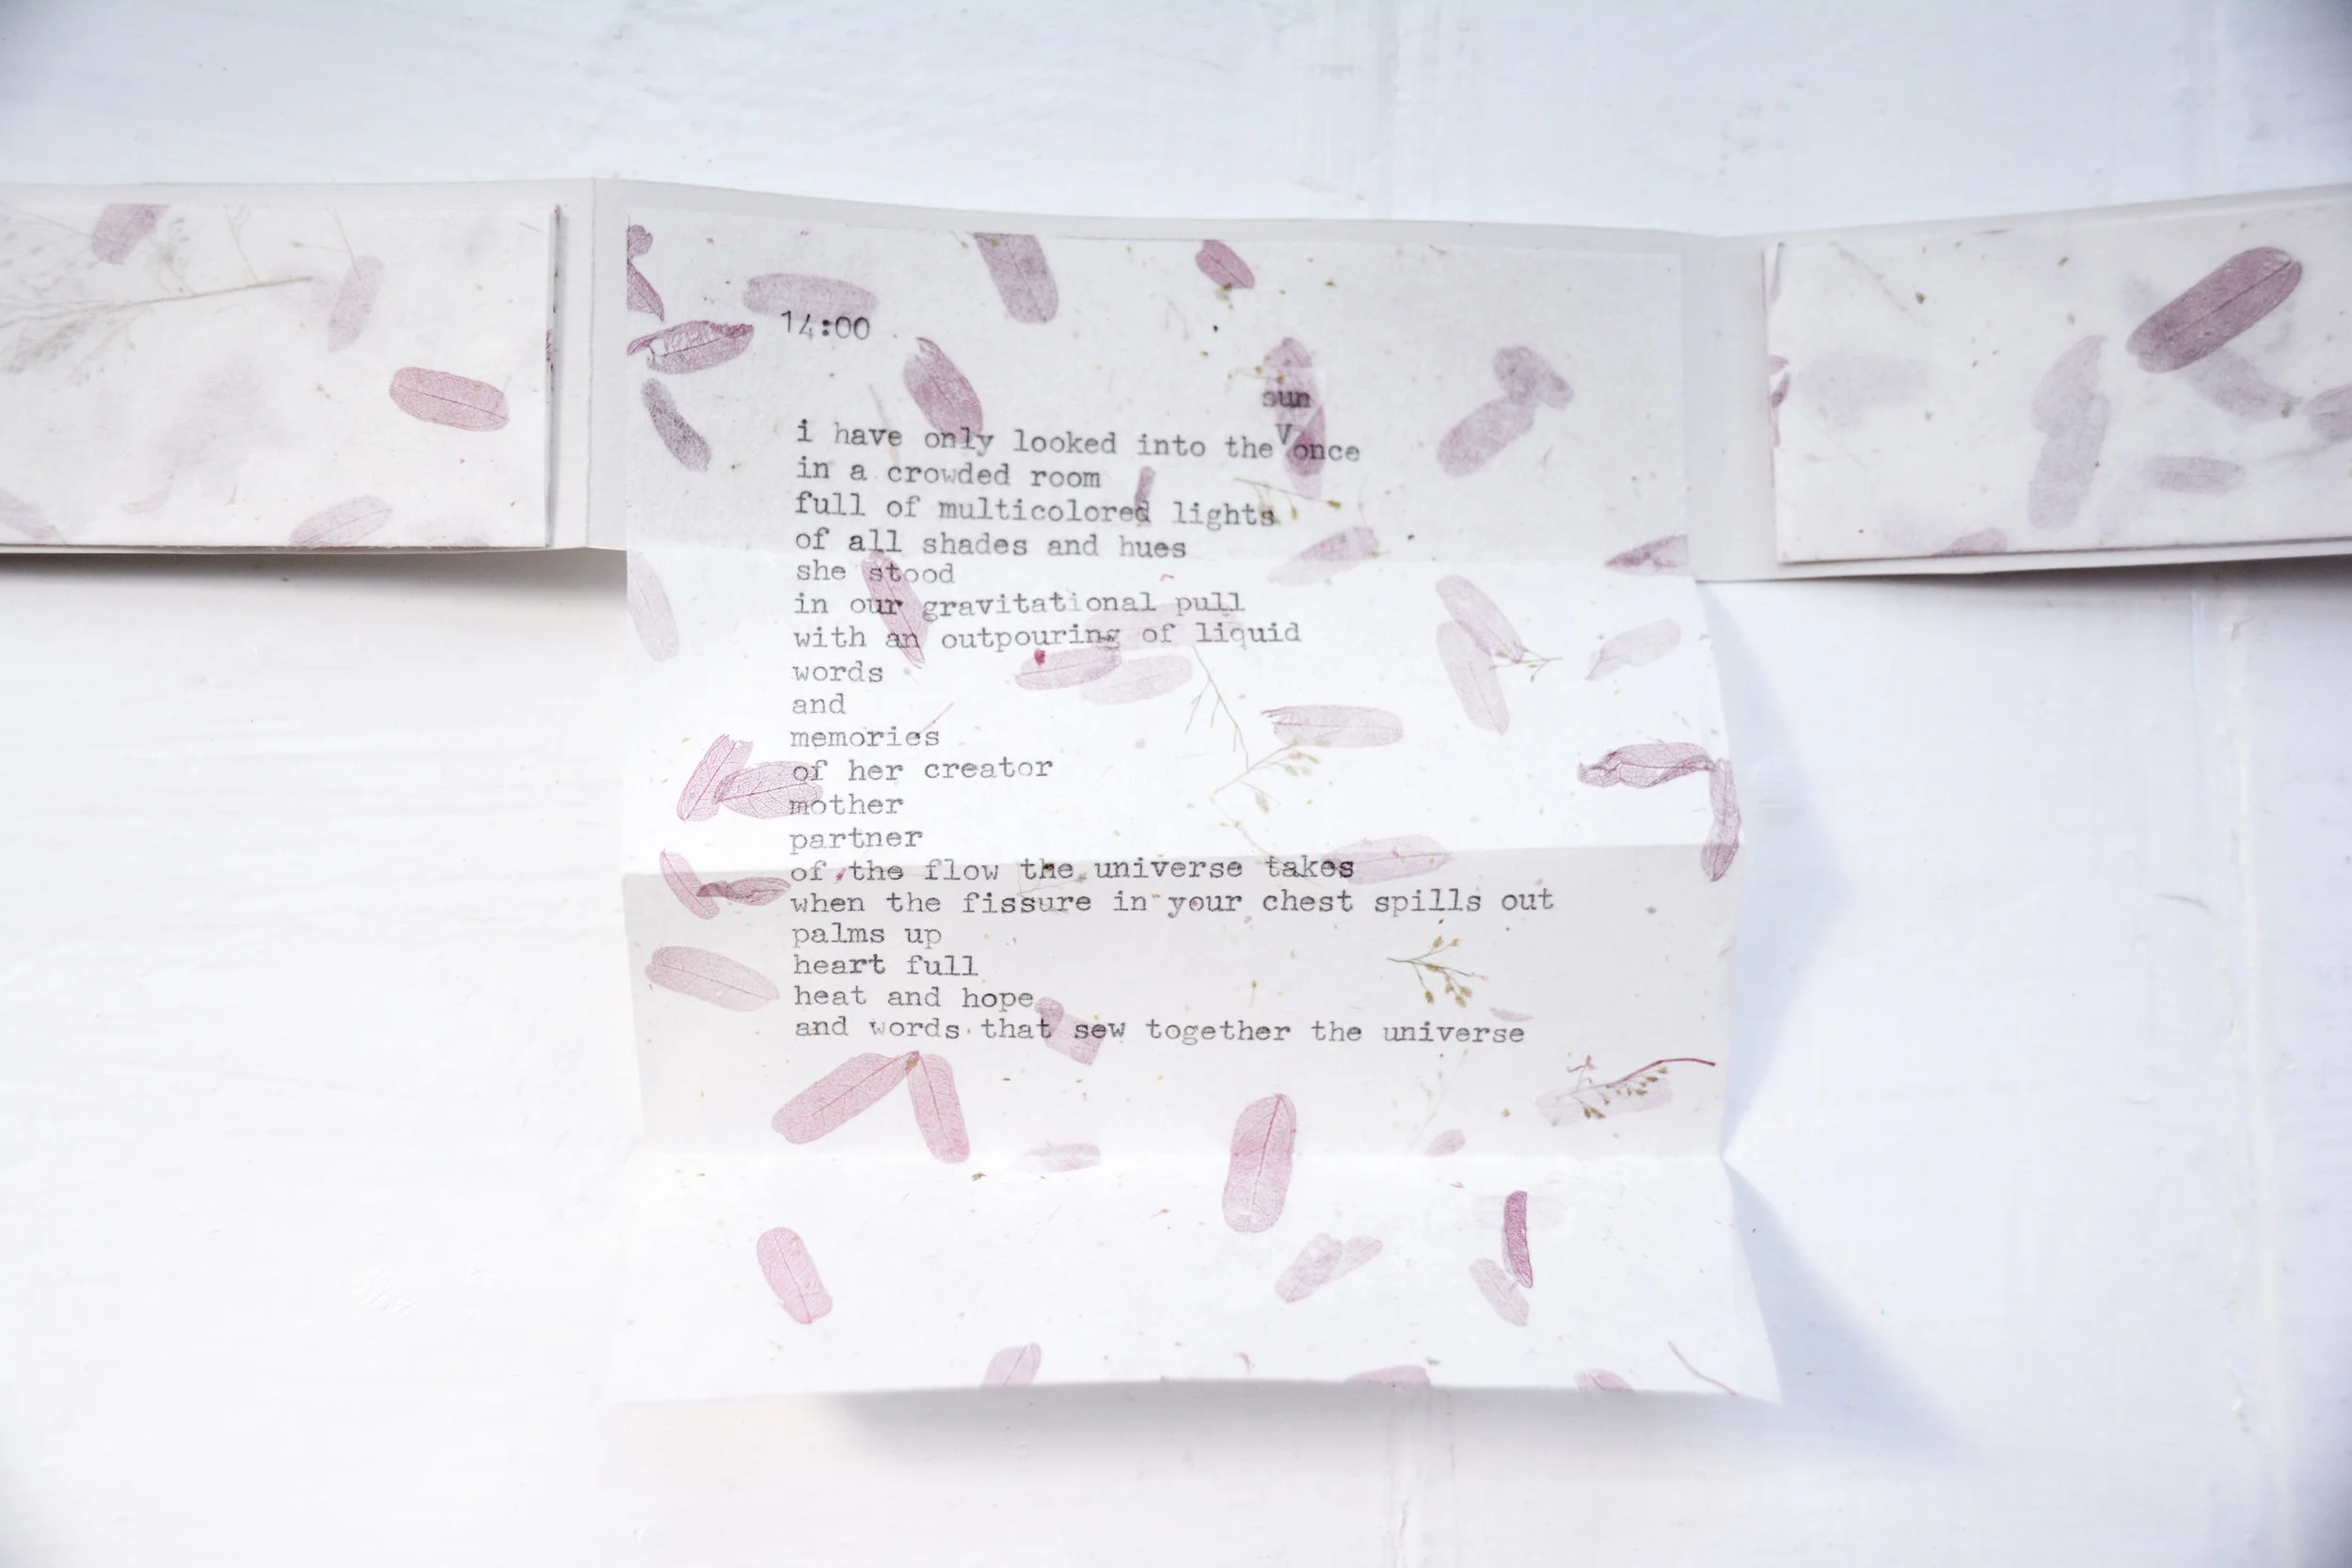 14:00
sun
i have only looked into the V once
in a crowded room
full of multicolored lights
of all shades and hues
she stood
in our gravitational pull
with an outpouring of liquid
words
and
memories
of her creator
mother
partner
of the flow the universe takes
when the fissure in your chest spills out
palms up
heart full
heat and hope
and words that sew together the universe